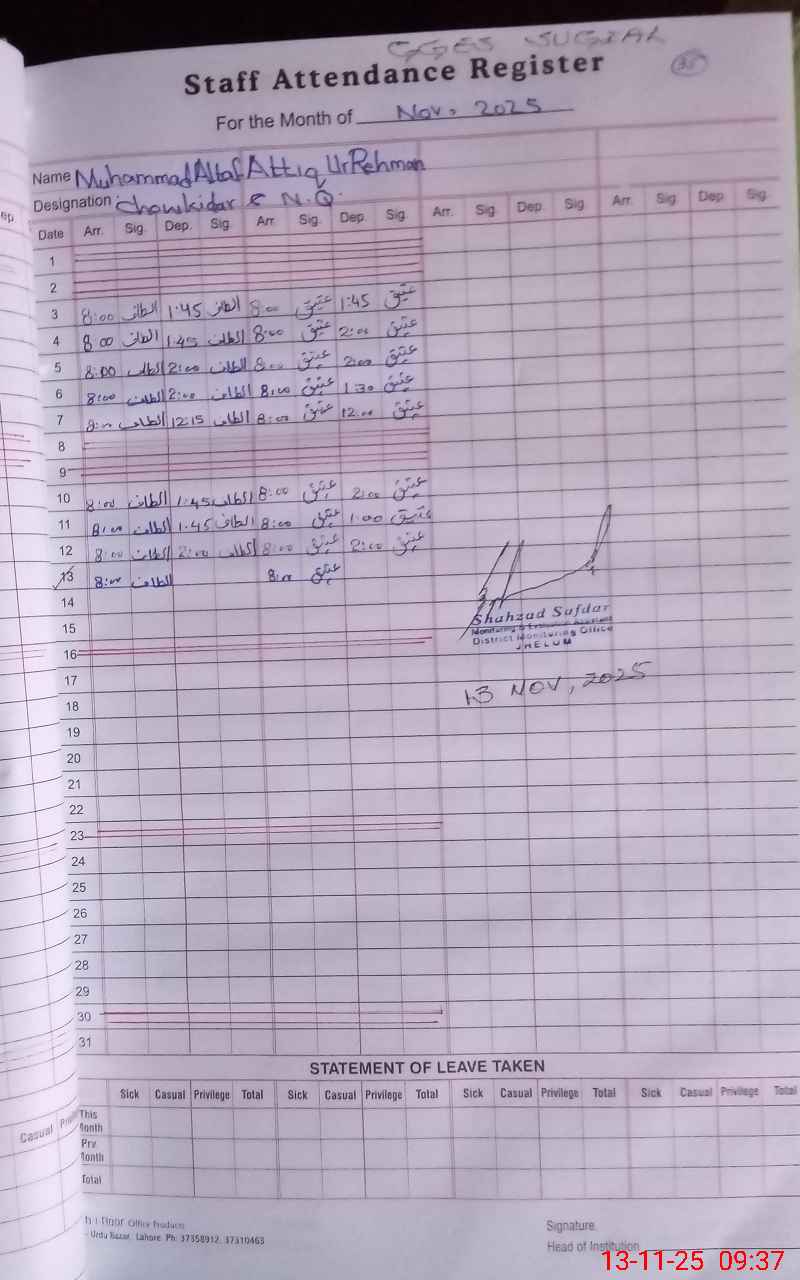 GGES SUGIAL
Staff Attendance Register
35
For the Month of Nov, 2025
Name Muhammad Altaf Attiq Ur Rehman
Designation Chowkidar & N.Q.
Date Arr. Sig. Dep. Sig. Arr. Sig. Dep. Sig. Arr. Sig. Dep. Sig. Arr. Sig. Dep. Sig.
1
2
3 8:00 الطاف 1:45 الطاف 8:00 عتیق 1:45 عتیق
4 8:00 الطاف 1:45 الطاف 8:00 عتیق 2:00 عتیق
5 8:00 الطاف 2:00 الطاف 8:00 عتیق 2:00 عتیق
6 8:00 الطاف 2:00 الطاف 8:00 عتیق 1:30 عتیق
7 8:00 الطاف 12:15 الطاف 8:00 عتیق 12:00 عتیق
8
9
10 8:00 الطاف 1:45 الطاف 8:00 عتیق 2:00 عتیق
11 8:00 الطاف 1:45 الطاف 8:00 عتیق 1:00 عتیق
12 8:00 الطاف 2:00 الطاف 8:00 عتیق 2:00 عتیق
13 8:00 الطاف 8:00 عتیق
14
15
Shahzad Safdar
Monitoring & Evaluation Assistant
District Monitoring Office
JHELUM
16
17
13 NOV, 2025
18
19
20
21
22
23
24
25
26
27
28
29
30
31
STATEMENT OF LEAVE TAKEN
Sick Casual Privilege Total Sick Casual Privilege Total Sick Casual Privilege Total Sick Casual Privilege Total
Casual
This Month
Prv. Month
Total
Office Products
Urdu Bazar, Lahore. Ph: 37358912, 37310463
Signature.
Head of Institution
13-11-25 09:37